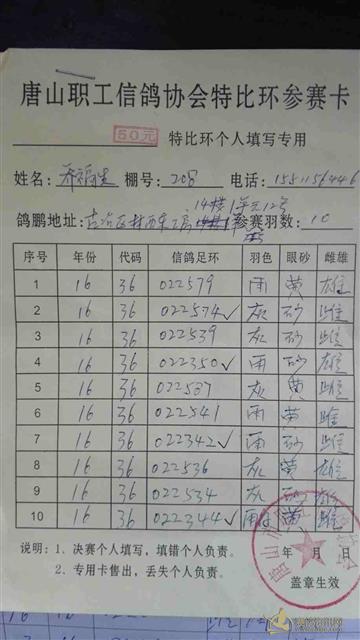 唐山职工信鸽协会特比环参赛卡
50元 特比环个人填写专用
姓名: 乔福生 棚号: 208 电话:
14楼1单元12号
鸽鹏地址: 古冶区林西东工房 参赛羽数: 10
序号 年份 代码 信鸽足环 羽色 眼砂 雌雄
1 16 36 022579 雨 黄 雄
2 16 36 022574✓ 灰 砂 雌
3 16 36 022539 灰 砂 雌
4 16 36 022350✓ 雨 砂 雄
5 16 36 022537 灰 黄 雌
6 16 36 022541 雨 黄 雌
7 16 36 022342✓ 雨 砂 雌
8 16 36 022536 灰 黄 雄
9 16 36 022534 灰 砂
10 16 36 022344✓ 雨 黄 雌
说明: 1、决赛个人填写,填错个人负责。 年 月 日
2、专用卡售出,丢失个人负责。 盖章生效